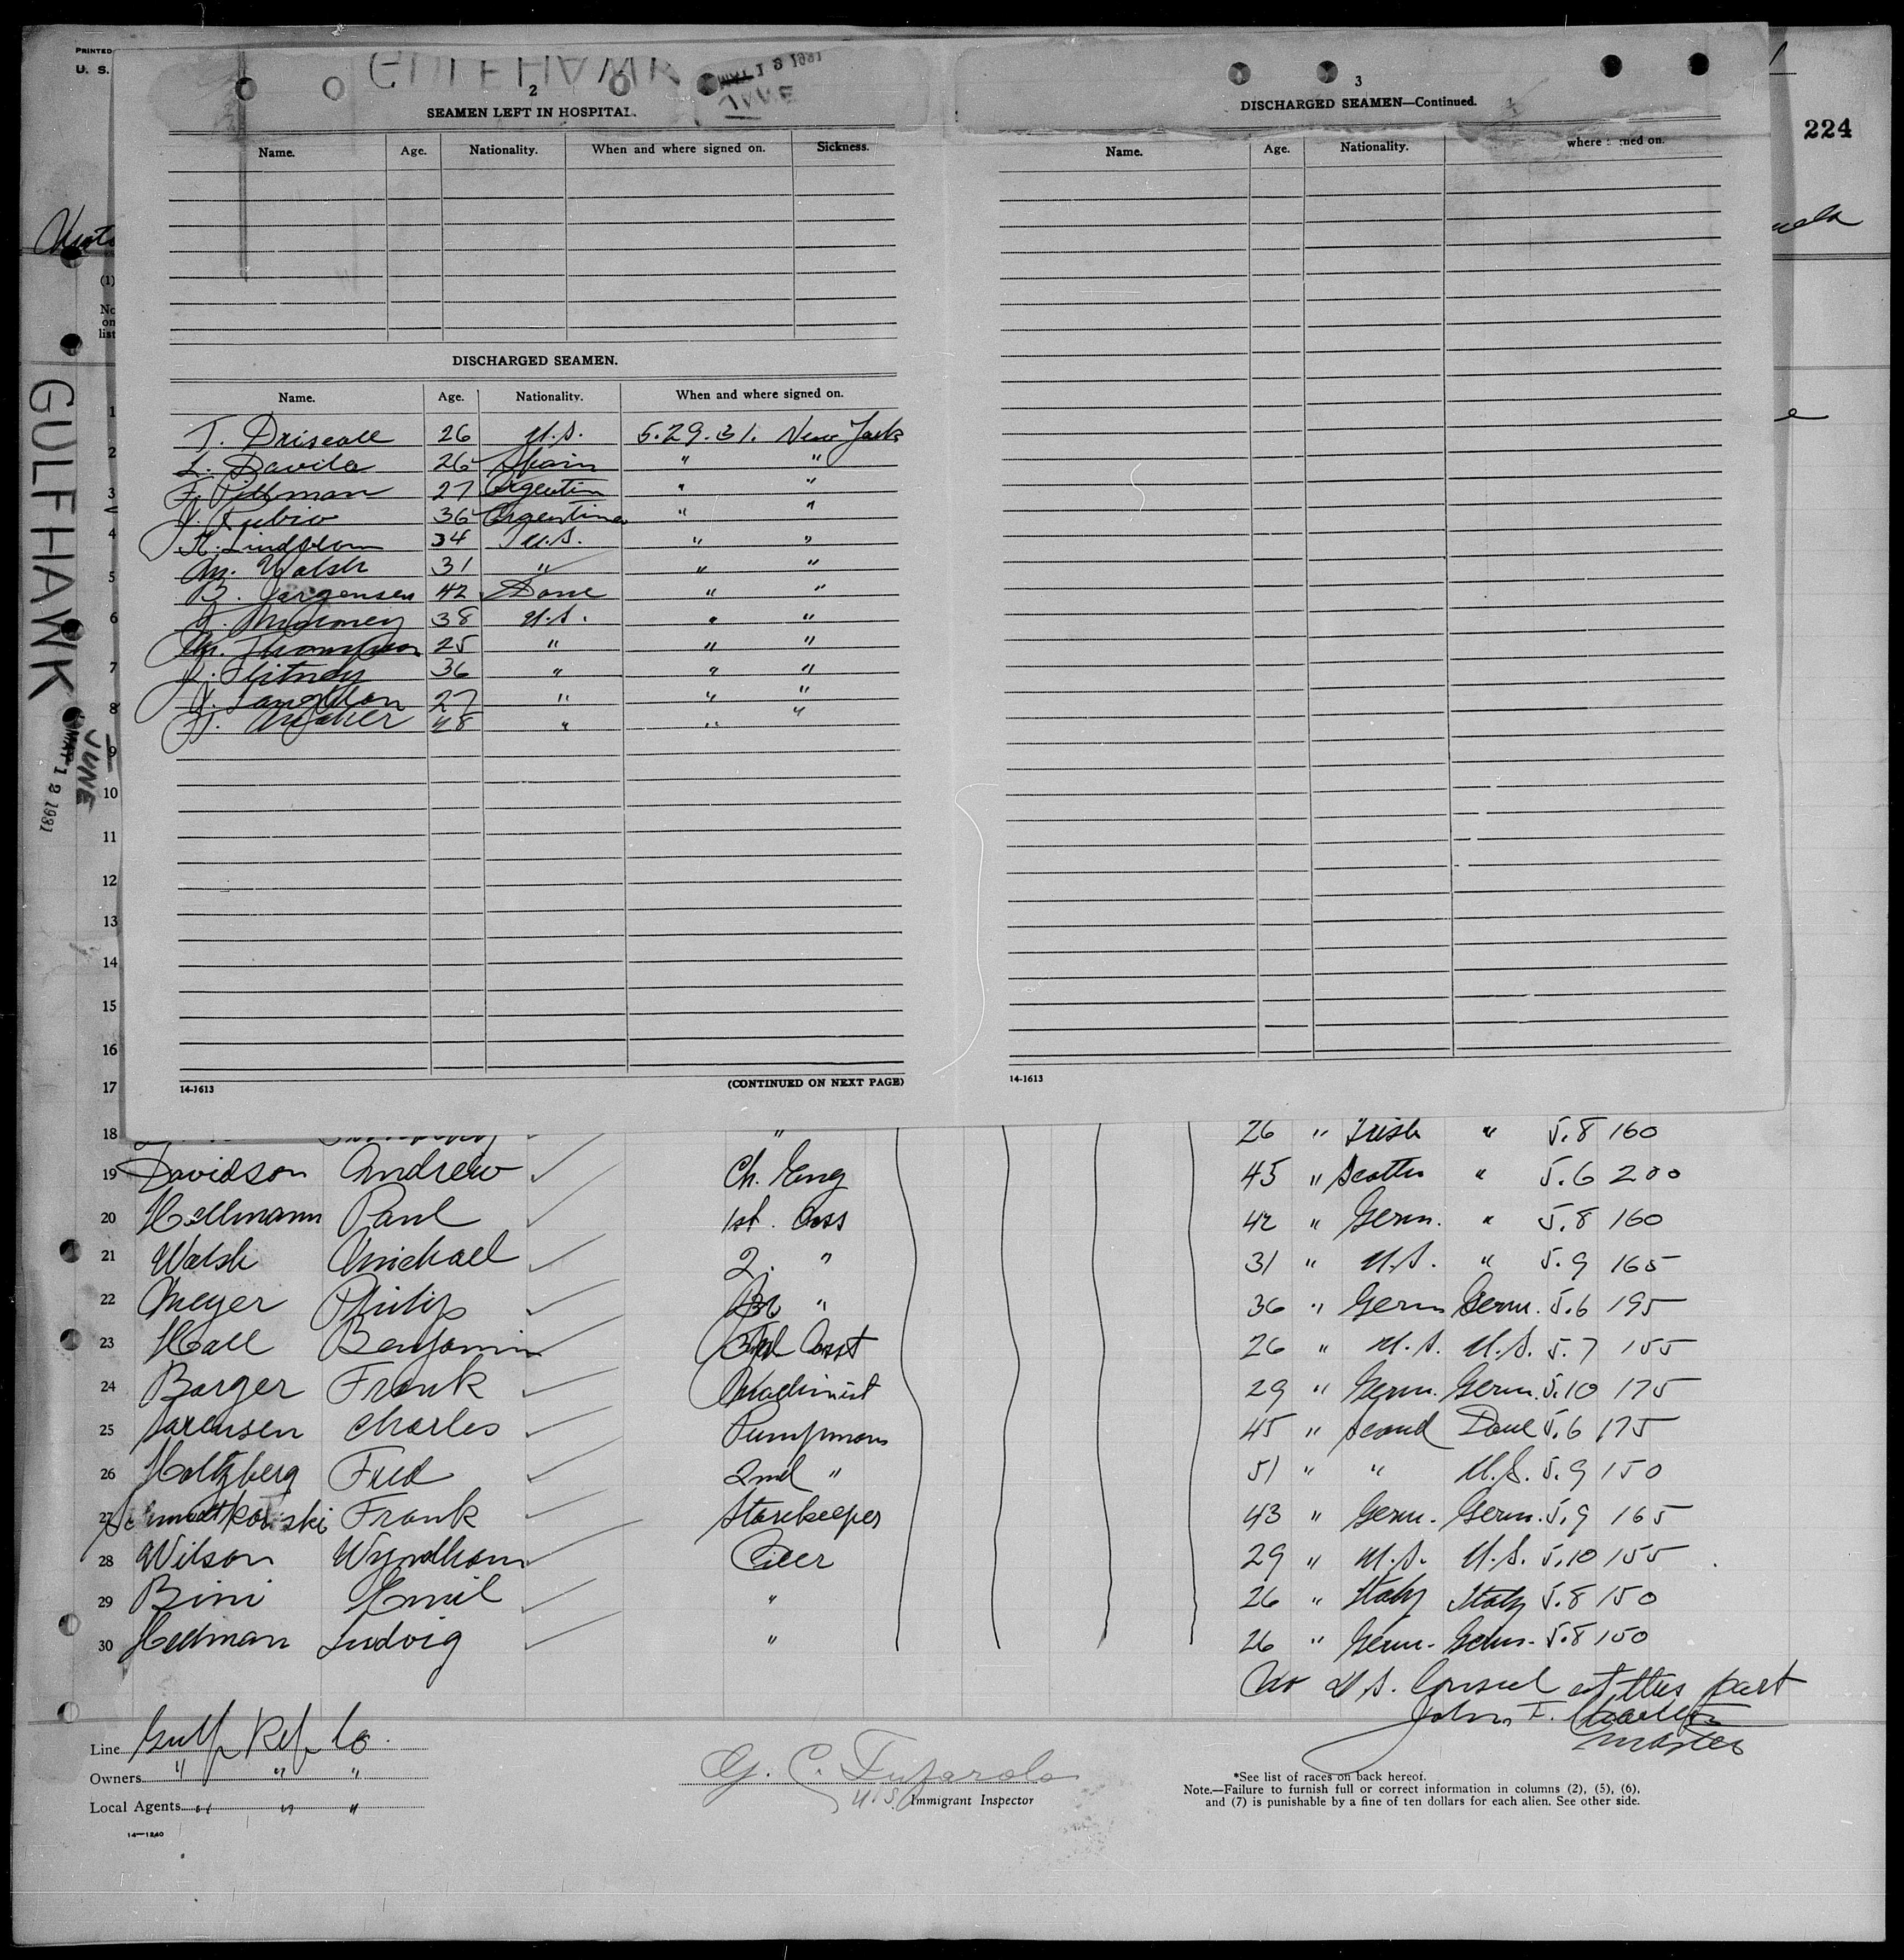 PRINTED
U. S.
GULFHAWK
MAY 13 1931
JUNE
2
SEAMEN LEFT IN HOSPITAL.
Name. Age. Nationality. When and where signed on. Sickness.
DISCHARGED SEAMEN.
Name. Age. Nationality. When and where signed on.
T. Driscoll 26 U.S. 5.29.31. New York
L. Davila 26 Spain " "
F. Pittman 27 Argentin " "
J. Rubio 36 Argentina " "
K. Lindblom 34 U.S. " "
M. Walsh 31 " " "
B. Jorgensen 42 Dane " "
J. Mahoney 38 U.S. " "
Thompson 25 " " "
36 " " "
27 " " "
48 " " "
14-1613 (CONTINUED ON NEXT PAGE)
3
DISCHARGED SEAMEN—Continued.
Name. Age. Nationality. where ned on.
14-1613
224
(1)
No
on
list
GULFHAWK
JUNE
MAY 12 1931
1
2
3
4
5
6
7
8
9
10
11
12
13
14
15
16
17
18 " 26 " Irish " 5.8 160
19 Davidson Andrew Ch. Eng 45 " Scotts " 5.6 200
20 Hellmann Paul 1st. Ass 42 " Germ. " 5.8 160
21 Walsh Michael 2. " 31 " U.S. " 5.9 165
22 Meyer Philip " 36 " Germ Germ. 5.6 195
23 Hall Benjamin Asst 26 " U.S. U.S. 5.7 155
24 Barger Frank Machinist 29 " Germ. Germ. 5.10 175
25 Sorensen Charles Pumpman 45 " Scand Dane 5.6 175
26 Holtzberg Fred 2nd " 51 " " U.S. 5.9 150
27 Frank Storekeeper 43 " Germ. Germ. 5.9 165
28 Wilson Wyndham Oiler 29 " U.S. U.S. 5.10 155
29 Bini Emil " 26 " Italy Italy 5.8 150
30 Hellman Ludvig " 26 " Germ. Germ. 5.8 150
No U.S. Consul at this port
John F.
Master
Line Gulf Ref Co.
Owners " " "
Local Agents " " "
14—1240
G. C.
Immigrant Inspector
*See list of races on back hereof.
Note.—Failure to furnish full or correct information in columns (2), (5), (6),
and (7) is punishable by a fine of ten dollars for each alien. See other side.